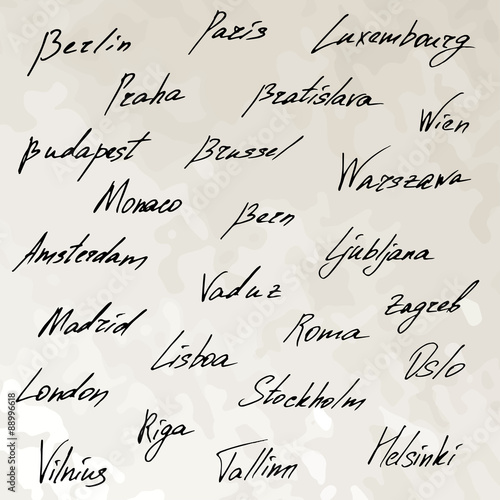 Berlin
Paris
Luxembourg
Praha
Bratislava
Wien
Budapest
Brussel
Warszawa
Monaco
Bern
Amsterdam
Ljubljana
Vaduz
Zagreb
Madrid
Roma
Lisboa
Oslo
London
Stockholm
Riga
Helsinki
Vilnius
Tallinn
Adobe Stock | #88996618